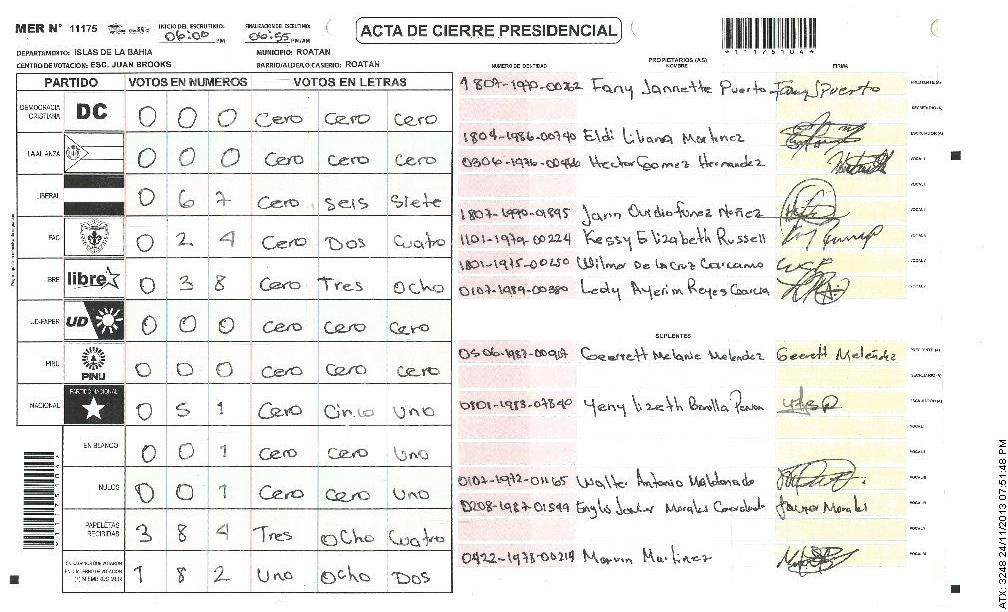 MER N° 11175
INICIO DEL ESCRUTINIO: 06:00 PM
FINALIZACION DEL ESCRUTINIO: 06:55 PM/AM
ACTA DE CIERRE PRESIDENCIAL
1117504
DEPARTAMENTO: ISLAS DE LA BAHIA
MUNICIPIO: ROATAN
CENTRO DE VOTACION: ESC. JUAN BROOKS
BARRIO/ALDEA O CASERIO: ROATAN
PARTIDO VOTOS EN NUMEROS VOTOS EN LETRAS
DEMOCRACIA CRISTIANA DC 0 0 0 Cero Cero Cero
LA ALIANZA 0 0 0 Cero Cero Cero
LIBERAL 0 6 7 Cero seis siete
PAC 0 2 4 Cero Dos Cuatro
LIBRE libre 0 3 8 Cero Tres Ocho
UD-FAPER UD 0 0 0 Cero Cero Cero
PINU PINU 0 0 0 Cero Cero Cero
NACIONAL PARTIDO NACIONAL 0 5 1 Cero Cinco Uno
EN BLANCO 0 0 1 Cero Cero Uno
NULOS 0 0 1 Cero Cero Uno
PAPELETAS RECIBIDAS 3 8 4 Tres Ocho Cuatro
CIUDADANOS QUE VOTARON 1 8 2 Uno Ocho DOS
NUMERO DE IDENTIDAD PROPIETARIOS (AS) NOMBRE FIRMA
Fany Jannette Puerto Fany J Puerto PRESIDENTE (A)
SECRETARIO (A)
1804-1986-00740 Eldi Liliana Martinez ESCRUTADOR (A)
Hector Gomez Hernandez VOCAL I
1807-1990-01895
1101-1979-00224 Kessy Elizabeth Russell
1801-1975-00250 Wilmer De la Cruz Carcamo
0107-1989-00380 Ledy Ayerim Reyes Garcia
SUPLENTES
Melanie Melendez Melendez PRESIDENTE (A)
SECRETARIO (A)
0801-1983-07840 Yeny lizeth ESCRUTADOR (A)
0107-1972-01165 Walter Antonio Maldonado
0208-1987-01599 Javier Morales Javier Morales
Marvin Martinez
ATX: 3248 24/11/2013 07:51:48 PM